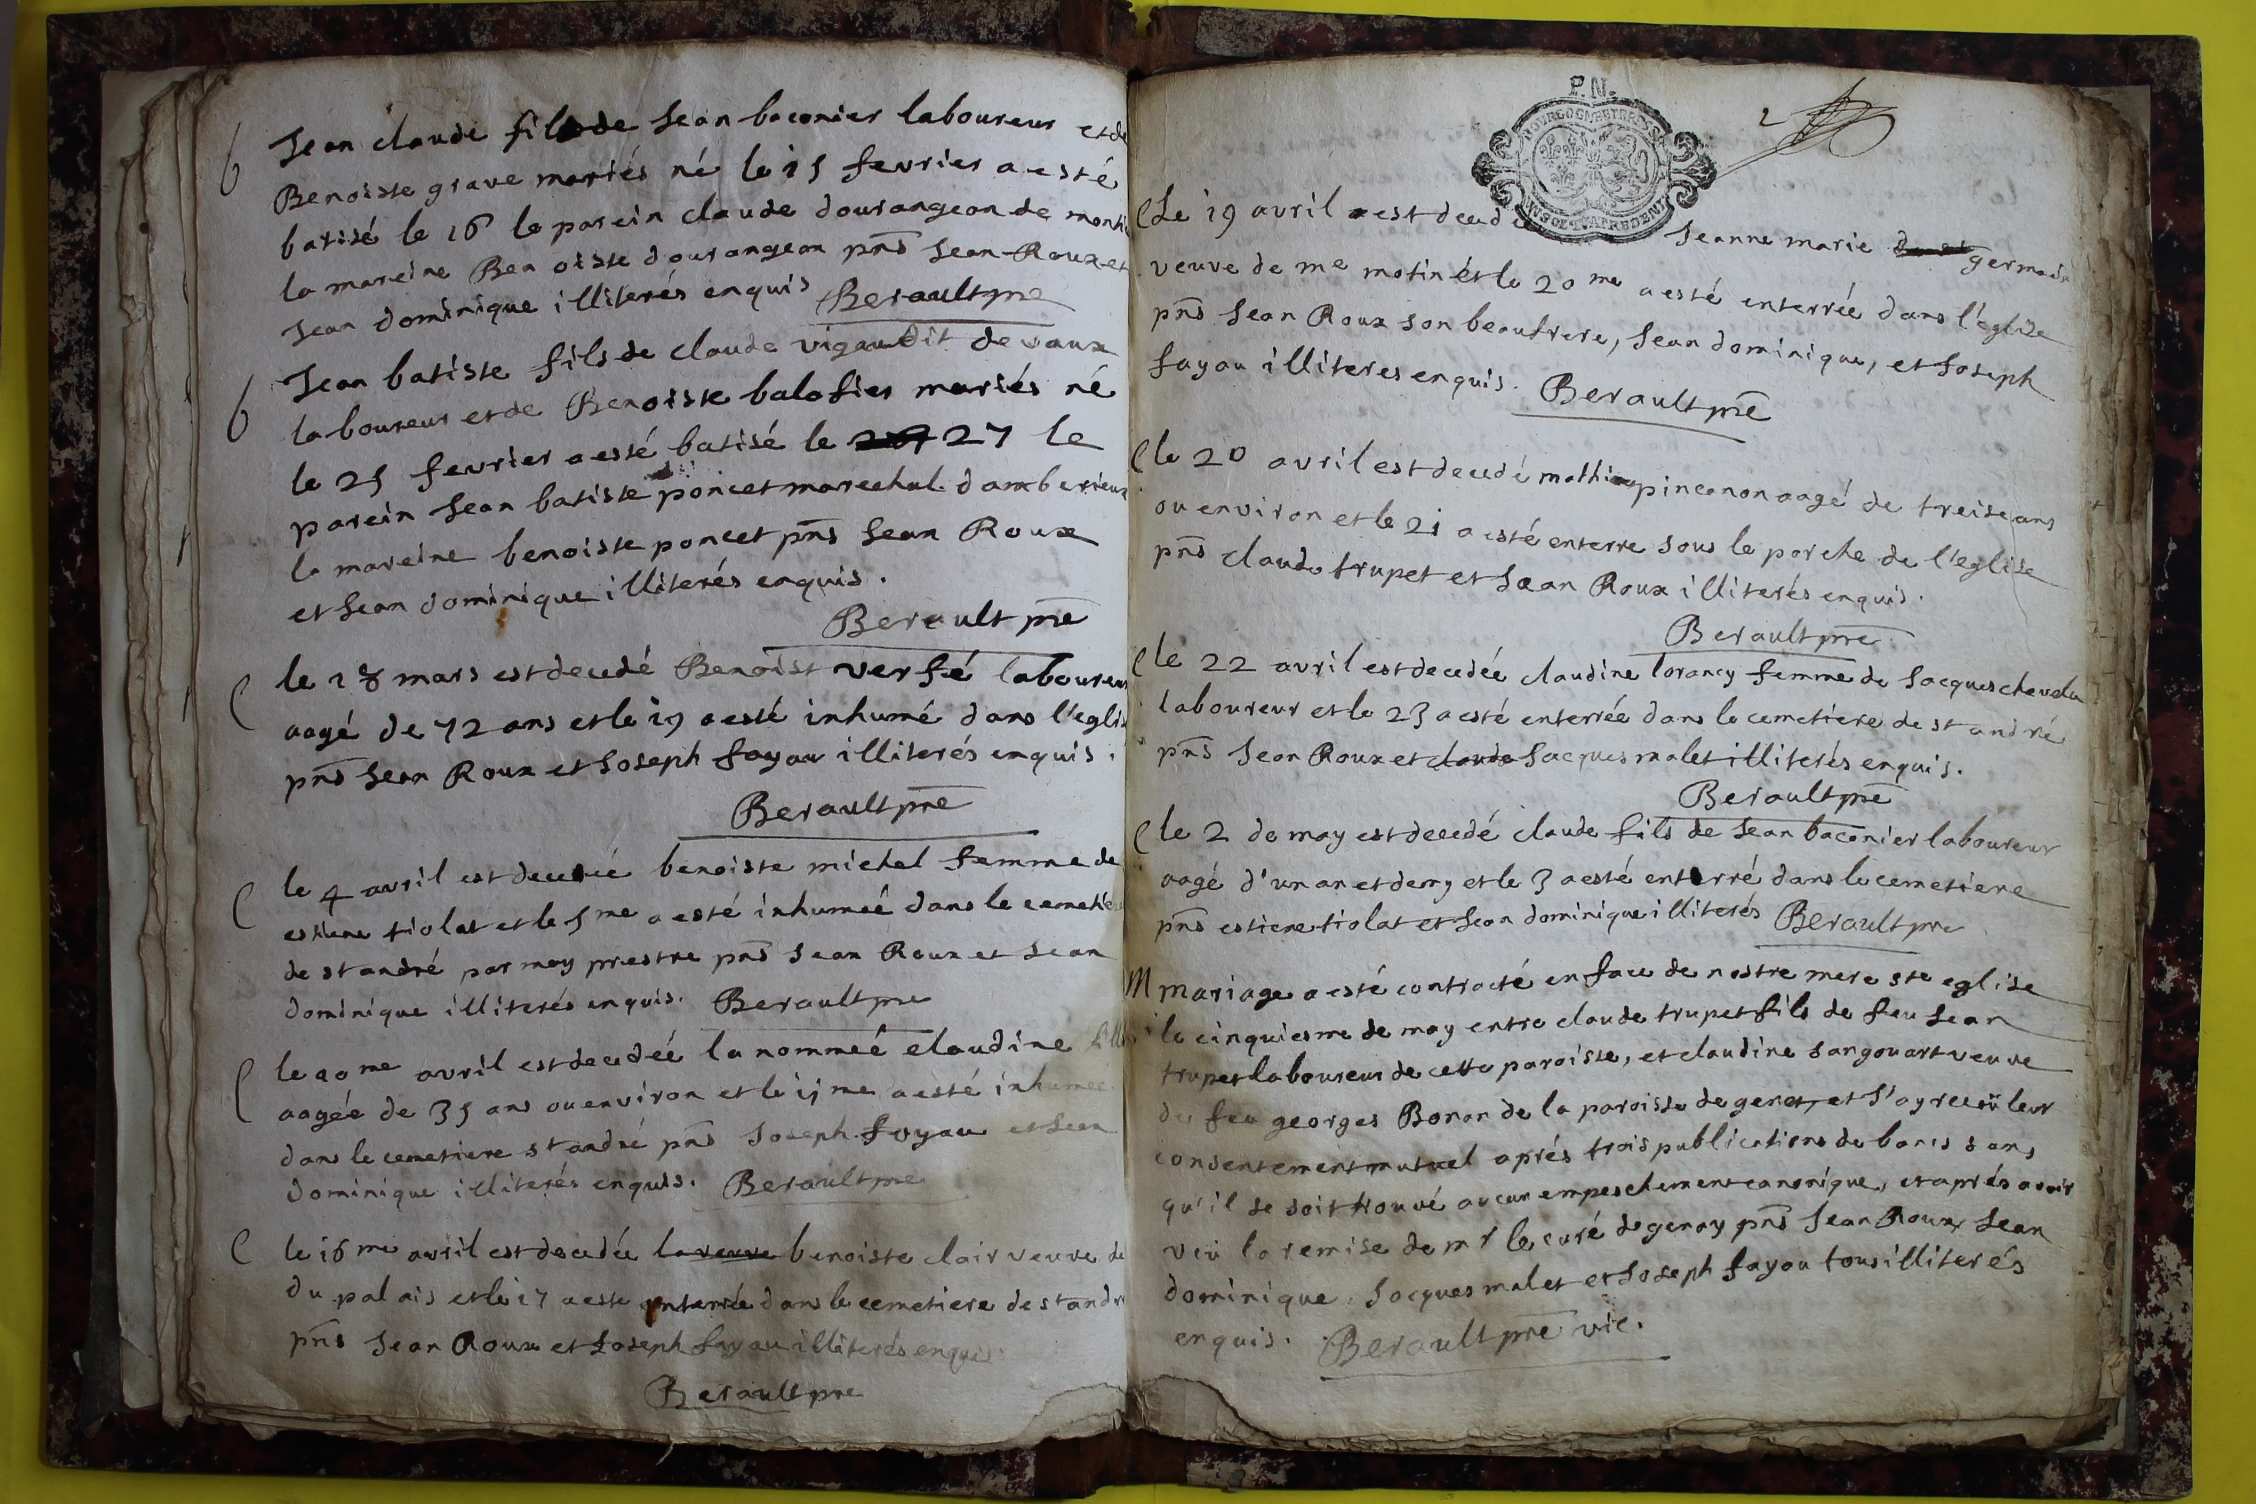 6 Jean claude fils de Jean baconier laboureur et de
Benoiste grave mariés né le 15 fevrier a esté
batisé le 16 le parein claude dourangeon de
la mareine Benoiste dourangeon pns Jean Roux et
Jean dominique illiterés enquis Berault pre
6 Jean batiste fils de claude vigau dit devaux
laboureur et de Benoiste balofier mariés né
le 25 fevrier a esté batisé le 27 le
parein Jean batiste poncet marechal damberieux
la mareine benoiste poncet pns Jean Roux
et Jean dominique illiterés enquis.
Berault pre
le 18 mars est decedé Benoist verfé laboureur
aagé de 72 ans et le 19 a esté inhumé dans l'eglise
pns Jean Roux et Joseph fayau illiterés enquis.
Berault pre
le 4 avril est decedée benoiste michel femme de
estiene tiolat et le 5me a esté inhumeé dans le cemetiere
de st andré par moy prestre pns Jean Roux et Jean
dominique illiterés enquis. Berault pre
le 10me avril est decedée la nommeé claudine
aagée de 35 ans ou environ et le 11me a esté inhumeé
dans le cemetiere st andré pns Joseph fayau et Jean
dominique illiterés enquis. Berault pre
le 16me avril est decedée la veuve benoiste clair veuve de
du palais et le 17 a esté enterrée dans le cemetiere de st andré
pns Jean Roux et Joseph fayau illiterés enquis
Berault pre
P.N.
2
Le 19 avril est decedée Jeanne marie germain
veuve de me matin et le 20me a esté enterrée dans l'eglise
pns Jean Roux son beaufrere, Jean dominique, et Joseph
fayau illiteres enquis. Berault pre
le 20 avril est decedé mathieu pincanon aagé de treise ans
ou environ et le 21 a esté enterre sous le porche de l'eglise
pns claude trupet et Jean Roux illiterés enquis.
Berault pre
le 22 avril est decedée claudine lorancy femme de Jacques chevalu
laboureur et le 23 a esté enterrée dans le cemetiere de st andré
pns Jean Roux et claude Jacques malet illiterés enquis.
Berault pre
le 2 de may est decedé claude fils de Jean baconier laboureur
aagé d'un an et demy et le 3 a esté enterré dans le cemetiere
pns estiene tiolat et Jean dominique illiterés Berault pre
M mariage a esté contracté en face de nostre mere ste eglise
le cinquiesme de may entre claude trupet fils de feu Jean
trupet laboureur de cette paroisse, et claudine sangouart veuve
de feu georges Bonon de la paroisse de genet, et j'ay receü leur
consentement mutuel aprés trois publications de bancs sans
qu'il se soit trouvé aucun empeschement canonique, et aprés avoir
veü la remise de mr le curé de genay pns Jean Roux, Jean
dominique, Jacques malet et Joseph fayau tous illiterés
enquis. Berault pre vic.